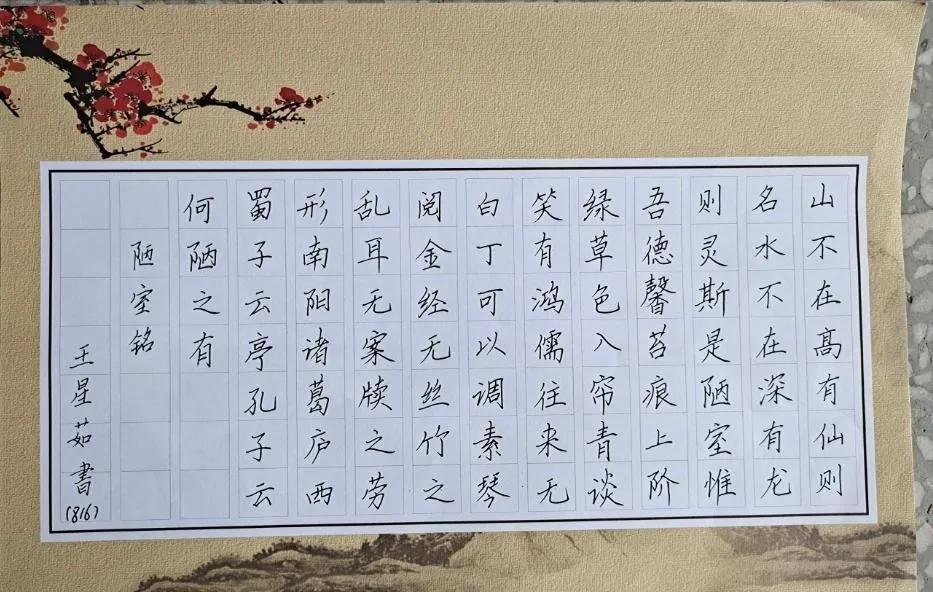 山不在高有仙则
名水不在深有龙
则灵斯是陋室惟
吾德馨苔痕上阶
绿草色入帘青谈
笑有鸿儒往来无
白丁可以调素琴
阅金经无丝竹之
乱耳无案牍之劳
形南阳诸葛庐西
蜀子云亭孔子云
何陋之有
陋室铭
王星茹書
(816)